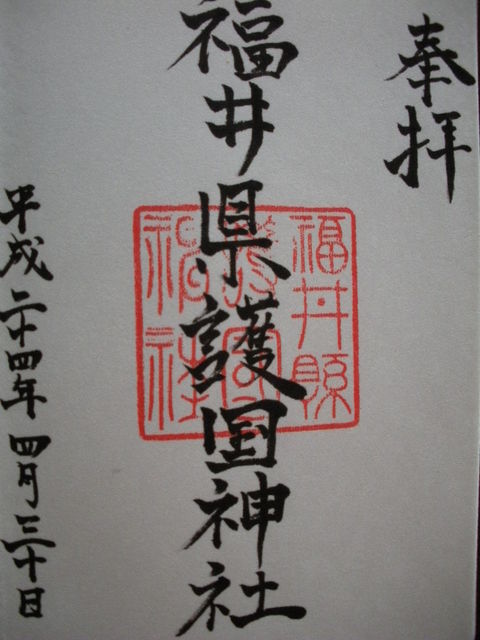 奉拝
福井県護国神社
福井縣
護國
神社
平成二十四年四月三十日